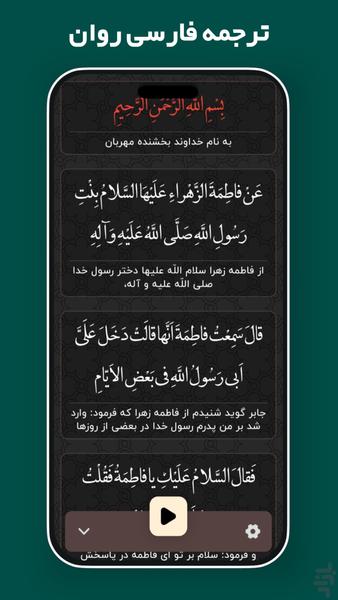 ترجمه فارسی روان
بِسْمِ اللَّهِ الرَّحْمَنِ الرَّحِيمِ
به نام خداوند بخشنده مهربان
عَنْ فاطِمَةَ الزَّهْراءِ عَلَيْهَا السَّلامُ بِنْتِ
رَسُولِ اللَّهِ صَلَّى اللَّهُ عَلَيْهِ وَ آلِهِ
از فاطمه زهرا سلام اللّه علیها دختر رسول خدا
صلی اللّه علیه و آله،
قالَ سَمِعْتُ فاطِمَةَ أَنَّها قالَتْ دَخَلَ عَلَيَّ
أَبي رَسُولُ اللَّهِ فِى بَعْضِ الأَيَّامِ
جابر گوید شنیدم از فاطمه زهرا که فرمود: وارد
شد بر من پدرم رسول خدا در بعضی از روزها
فَقالَ السَّلامُ عَلَيْكِ يا فاطِمَةُ فَقُلْتُ
و فرمود: سلام بر تو ای فاطمه در پاسخش